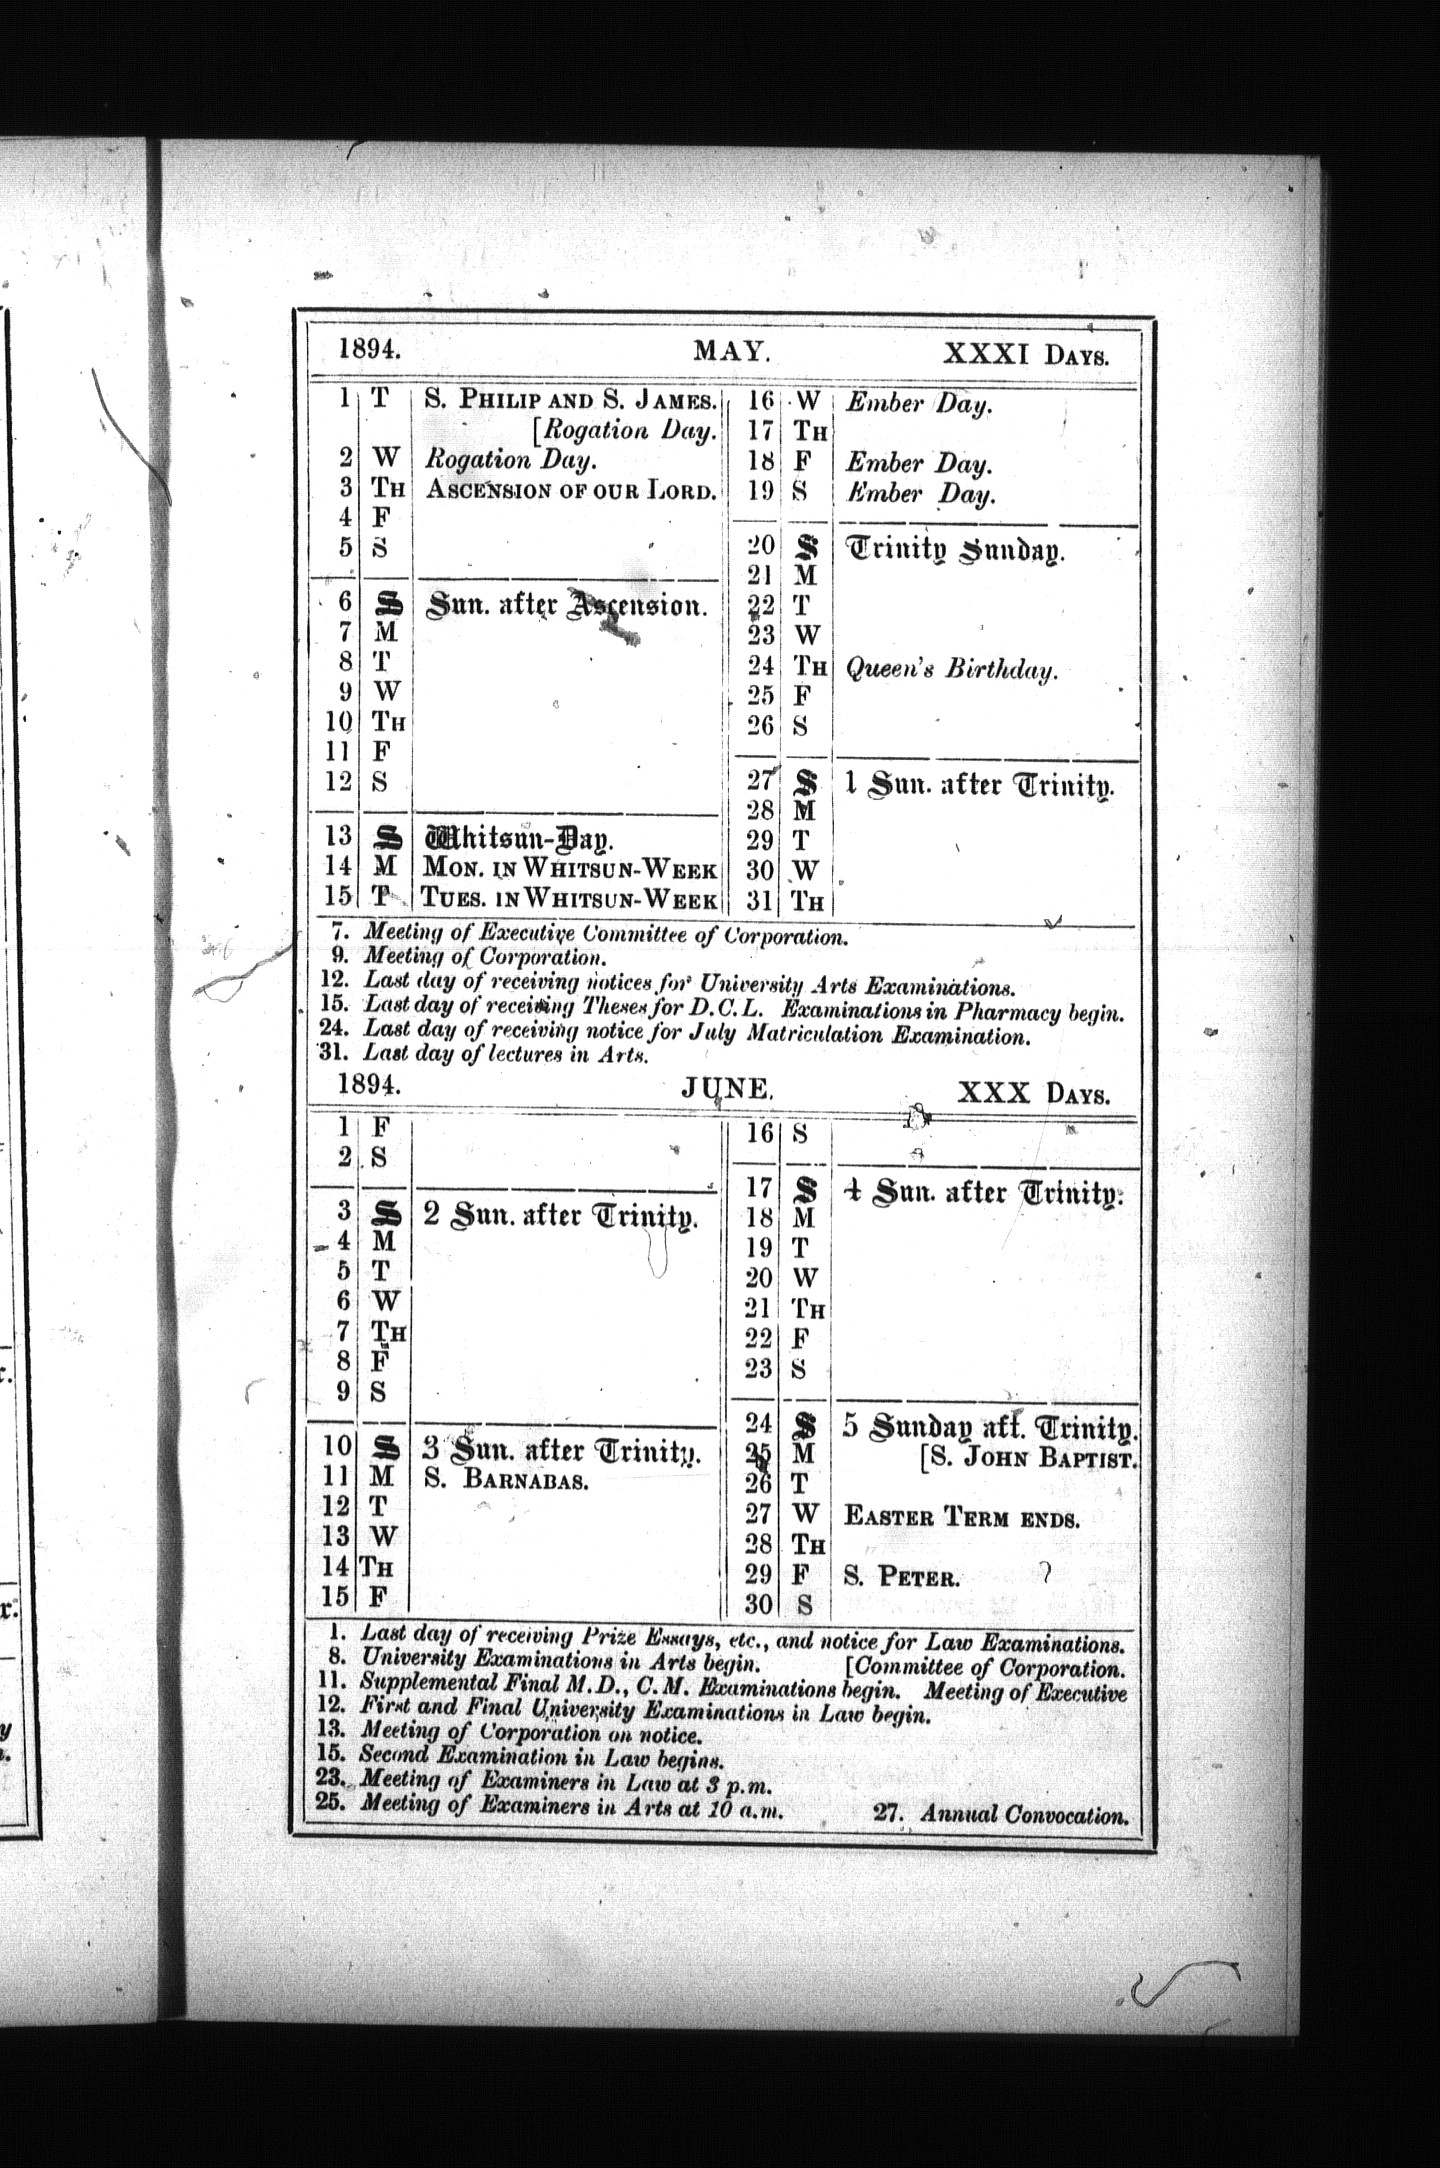 1894. MAY. XXXI DAYS.
1 T S. PHILIP AND S. JAMES.
[Rogation Day.
2 W Rogation Day.
3 TH ASCENSION OF OUR LORD.
4 F
5 S
6 S Sun. after Ascension.
7 M
8 T
9 W
10 TH
11 F
12 S
13 S Whitsun-Day.
14 M MON. IN WHITSUN-WEEK
15 T TUES. IN WHITSUN-WEEK
16 W Ember Day.
17 TH
18 F Ember Day.
19 S Ember Day.
20 S Trinity Sunday.
21 M
22 T
23 W
24 TH Queen's Birthday.
25 F
26 S
27 S 1 Sun. after Trinity.
28 M
29 T
30 W
31 TH
7. Meeting of Executive Committee of Corporation.
9. Meeting of Corporation.
12. Last day of receiving notices for University Arts Examinations.
15. Last day of receiving Theses for D.C.L. Examinations in Pharmacy begin.
24. Last day of receiving notice for July Matriculation Examination.
31. Last day of lectures in Arts.
1894. JUNE. XXX DAYS.
1 F
2 S
3 S 2 Sun. after Trinity.
4 M
5 T
6 W
7 TH
8 F
9 S
10 S 3 Sun. after Trinity.
11 M S. BARNABAS.
12 T
13 W
14 TH
15 F
16 S
17 S 4 Sun. after Trinity.
18 M
19 T
20 W
21 TH
22 F
23 S
24 S 5 Sunday aft. Trinity.
25 M [S. JOHN BAPTIST.
26 T
27 W EASTER TERM ENDS.
28 TH
29 F S. PETER.
30 S
1. Last day of receiving Prize Essays, etc., and notice for Law Examinations.
8. University Examinations in Arts begin. [Committee of Corporation.
11. Supplemental Final M.D., C.M. Examinations begin. Meeting of Executive
12. First and Final University Examinations in Law begin.
13. Meeting of Corporation on notice.
15. Second Examination in Law begins.
23. Meeting of Examiners in Law at 3 p.m.
25. Meeting of Examiners in Arts at 10 a.m. 27. Annual Convocation.